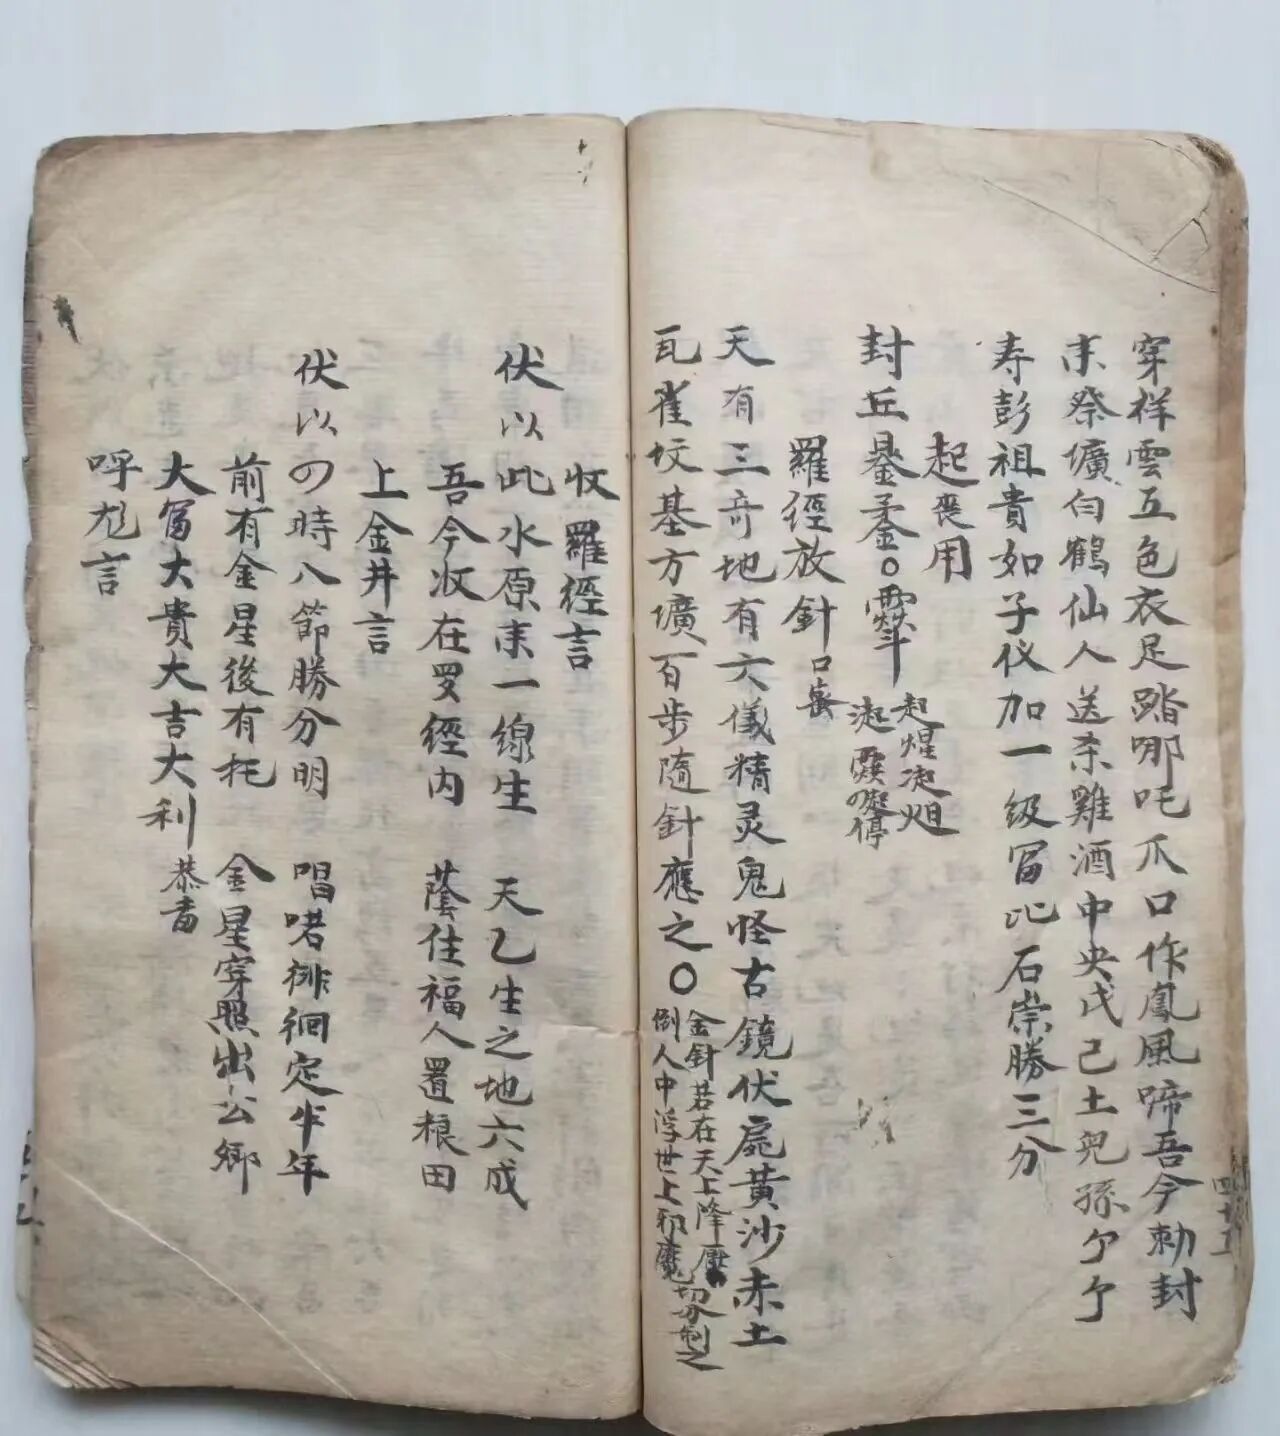 穿祥雲五色衣足踏哪吒爪口作鳳風啼吾今勅封
末祭壙白鶴仙人送杀雞酒中央戊己土兒孫个个
寿彭祖貴如子仪加一级冨比石崇勝三分
起丧用
封丘
羅經放針口
天有三奇地有六儀精灵鬼怪古鏡伏屍黄沙赤土
瓦雀坟基方壙百步隨針應之〇
金針若在天上降
倒人中浮世上邪魔 制之
收羅經言
伏以此水原末一線生 天乙生之地六成
吾今收在罗經内 蔭住福人置粮田
上金井言
伏以四時八節勝分明 唱喏徘徊定牛年
前有金星後有托 金星穿照出公鄉
大冨大貴大吉大利
呼尨言